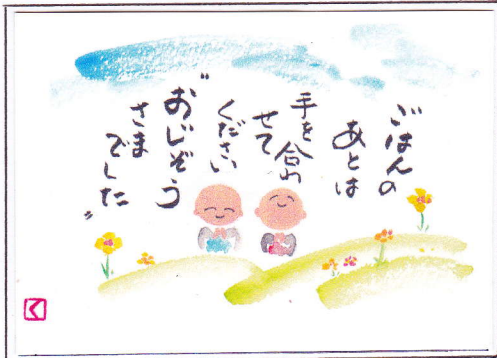 ごはんの
あとは
手を合わ
せて
ください
"おじぞう
さま
でした"
く